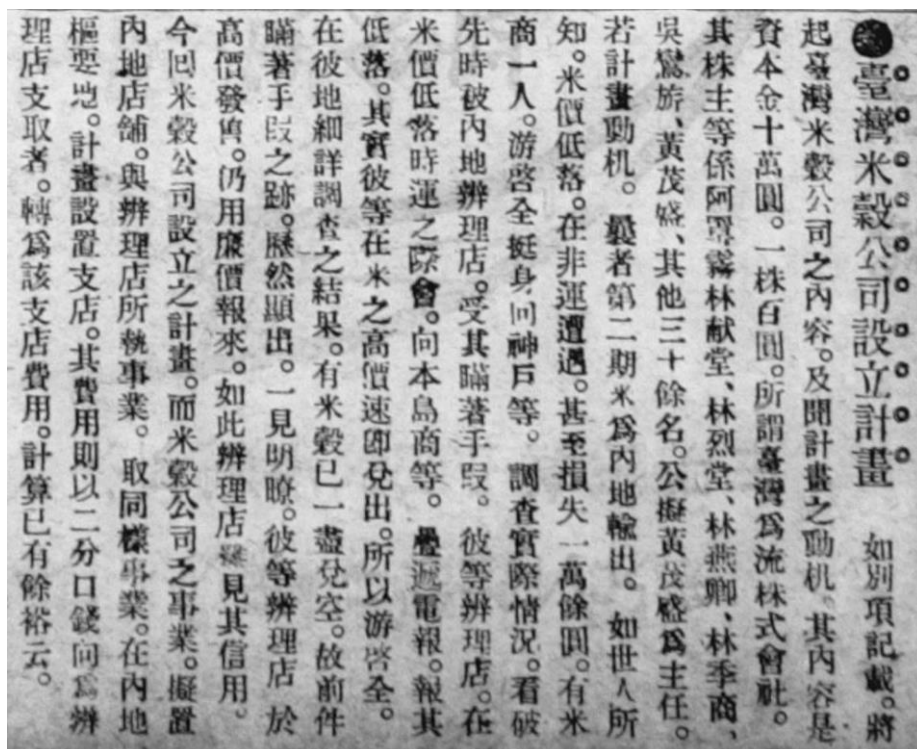 臺灣米穀公司設立計畫　如別項記載。將
起臺灣米穀公司之內容。及聞計畫之動机。其內容是
資本金十萬圓。一株百圓。所謂臺灣爲流株式會社。
其株主等係阿罩霧林献堂、林烈堂、林燕卿、林季商、
吳鸞旂、黃茂盛、其他三十餘名。公擬黃茂盛爲主任。
若計畫動机。曩者第二期米爲內地輸出。如世人所
知。米價低落。在非運遭遇。甚至損失一萬餘圓。有米
商一人。游啓全挺身回神戶等。調查實際情況。看破
先時被內地辨理店。受其瞞著手段。彼等辨理店。在
米價低落時運之際會。向本島商等。疊遞電報。報其
低落。其實彼等在米之高價速卽兌出。所以游啓全。
在彼地細詳調查之結果。有米穀已一盡兌空。故前件
瞞著手段之跡。歷然顯出。一見明瞭。彼等辨理店於
高價發售。仍用廉價報來。如此辨理店難見其信用。
今回米穀公司設立之計畫。而米穀公司之事業。擬置
內地店舖。與辨理店所執事業。取同樣事業。在內地
樞要地。計畫設置支店。其費用則以二分口錢向爲辨
理店支取者。轉爲該支店費用。計算已有餘裕云。